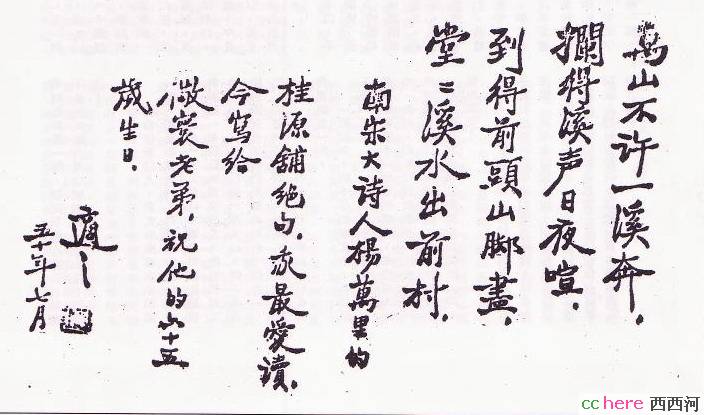 萬山不许一溪奔，
攔得溪声日夜喧．
到得前頭山脚盡，
堂〻溪水出前村．
南宋大诗人楊萬里的
桂源舖绝句，我最愛讀．
今寫给
儆寰老弟，祝他的六十五
歲生日．
適之
五十年七月
cchere 西西河